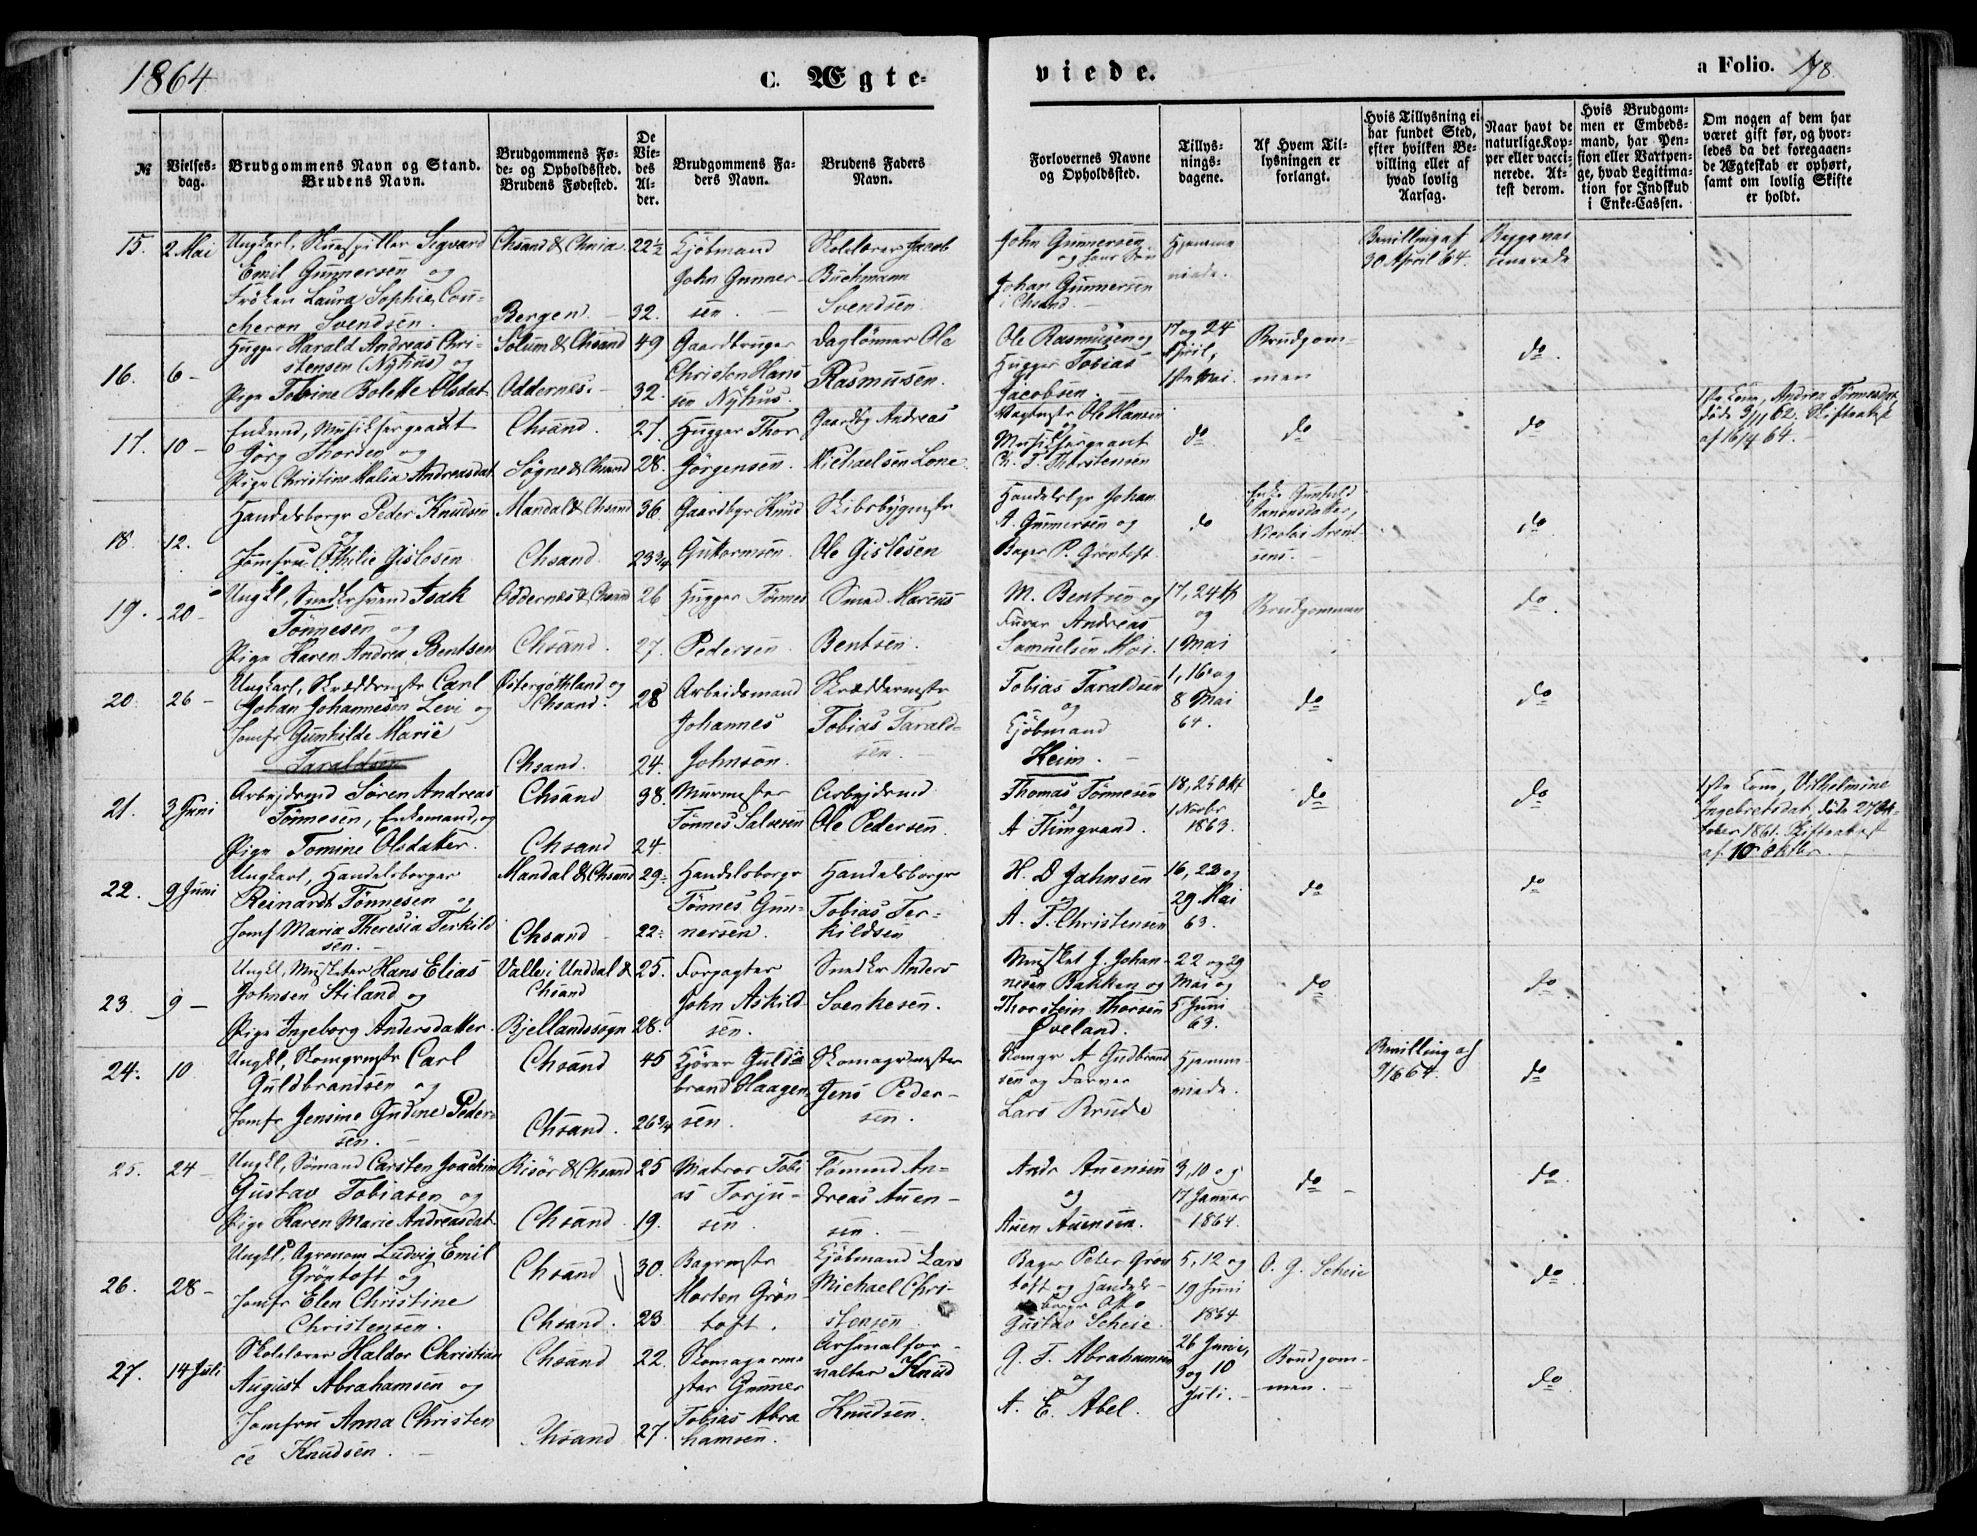 1864
C. Ægte-
viede.
a Folio. 178.
№
Vielses-
dag.
Brudgommens Navn og Stand.
Brudens Navn.
Brudgommens Fø-
de- og Opholdssted.
Brudens Fødested.
De
Vie-
des
Al-
der.
Brudgommens Fa-
ders Navn.
Brudens Faders
Navn.
Forlovernes Navne
og Opholdssted.
Tillys-
nings-
dagene.
Af Hvem Til-
lysningen er
forlangt.
Hvis Tillysning ei
har fundet Sted,
efter hvilken Be-
villing eller af
hvad lovlig
Aarsag.
Naar havt de
naturlige Kop-
per eller vacci-
nerede. At-
test derom.
Hvis Brudgom-
men er Embeds-
mand, har Pen-
sion eller Vartpen-
ge, hvad Legitima-
tion for Indskud
i Enke-Cassen.
Om nogen af dem har
været gift før, og hvor-
ledes da det foregaaen-
de Ægteskab er ophørt,
samt om lovlig Skifte
er holdt.
15. 2 Mai
Ungkarl, Skuespiller Sigvard
Emil Gunnersen og
Frøken Laura Sophie Cou-
cheron Svendsen.
Chsand & Chnia
Bergen.
22½
32.
Kjöbmand
John Gunner-
sen.
Skolelærer Jacob
Buchmann
Svendsen
John Gunnersen
og hans Søn
Johan Gunnersen
i Chsand.
Hjemme
viede.
Bevilling af
30 April 64.
Begge vac
cinerede
16. 6 -
Hugger Harald Andreas Chri-
stensen (Nyhus) og
Pige Tobine Bolette Olsdat.
Solum & Chsand
Oddernes.
49
32.
Gaardbruger
Christen Hans
sen Nyhus.
Daglönner Ole
Rasmusen.
Ole Rasmusen og
Hugger Tobias
Jacobsen.
17 og 24
April,
1ste Mai.
Brudgom-
men
do
17. 10 -
Enkemd, Musiksergeant
Jörg Thorsen og
Pige Christine Malia Andreasdat.
Chsand.
Søgne & Chsand
27
28.
Hugger Thor
Jörgensen.
Gaardbr Andreas
Michaelsen Lone.
Vagtmstr Ole Hansen
og
Musiksergeant
Ch. T. Thorstensen
do
do
do
1ste Kone, Andrea Tønnesdat
døde 3/11 62. Skifteattest
af 16/4 64.
18. 12.
Handelsborgr Peder Knudsen
og
Jomfru Othilie Gislesen
Mandal & Chsand
Chsand.
36.
23¾
Gaardbgr Knud
Guttormsen.
Skibsbygmstr
Ole Gislesen
Handelsbgr Johan
A. Gunnersen og
Bager P. Gröntoft.
do
Enke Gunhild
Aanensdatter,
Nicolai Arent-
sens.
do
19. 20 -
Ungkl, Snedkersvend Isak
Tönnesen og
Pige Karen Andrea Bentsen
Oddernes & Chsand
Chsand.
26
27.
Hugger Tønnes
Pedersen.
Smed Marcus
Bentsen.
M. Bentsen og
Furer Andreas
Samuelsen Moi.
17, 24 Ap
og
1 Mai
Brudgommen
do.
20. 26 -
Ungkarl, Skræddermstr Carl
Johan Johannesen Levi og
Jomfr Gunhilde Marie
Taraldsen
Østergøthland og
Chsand.
Chsand.
28
24.
Arbeidsmand
Johannes
Johnson.
Skræddermstr
Tobias Tarald-
sen.
Tobias Taraldsen
og
Kjöbmand
Heim.
1, 16 og
8 Mai
64.
do
do
21. 3 Juni
Arbejdsmd Søren Andreas
Tønnesen, Enkemand, og
Pige Tomine Olsdatter.
Chsand
Chsand
38.
24.
Murmester
Tönnes Salvesen
Arbejdsmd
Ole Pedersen.
Thomas Tönnesen
og
A Flimgvand.
18, 25 Okt
1 Novbr
1863.
do
do
1ste Kone, Vilhelmine
Ingebretsdat, døde 27 Ok-
tober 1861. Skifteattest
af 10 Oktbr.
22. 9 Juni
Ungkarl, Handelsborger
Reinardt Tönnesen og
Jomf Maria Theresia Terkild
sen.
Mandal & Chsand
Chsand
29.
22.
Handelsborgr
Tönnes Gun-
nersen.
Handelsborgr
Tobias Ter-
kildsen
H. D Jahnsen
og
A. F. Christensen
16, 22 og
29 Mai
63.
do
do
23. 9 -
Ungkl, Musketer Hans Elias
Johnsen Stiland og
Pige Ingeborg Andersdatter.
Valle i Unddal &
Chsand
Bjellandssogn
25.
28.
Forpagter
John Askild-
sen.
Snedkr Anders
Svenkesen.
Musket J. Johan-
nesen Bakken og
Thorstein Thorsen
Øveland.
22 og 29
Mai og
5 Juni
63.
do
do
24. 10
Ungkl, Skomgrmstr Carl
Guldbrandsen og
Jomfr Jensine Gudine Peder-
sen.
Chsand
Chsand.
45
26¾
Kjører Guld-
brand Haagen
sen.
Skomagermester
Jens Peder-
sen.
Skomgr A Gudbrand
sen og Farver
Lars Brude
Hjemme-
viede.
Bevilling af
9/6 64.
do
25. 24 -
Ungkl, Sømand Carsten Joachim
Gustav Tobiasen og
Pige Karen Marie Andreasdat.
Risör & Chsand
Chsand.
25
19.
Matros Tobi
as Torju-
sen.
Tømmd An-
dreas Auen-
sen.
Andr Auensen
og
Auen Auensen.
3, 10 og
17 Januar
1864.
do
do.
26. 28 -
Ungkl, Agronom Ludvig Emil
Gröntoft og
Jomfr Elen Christine
Christensen.
Chsand
Chsand.
30.
23
Bagermstr
Morten Grön-
toft.
Kjöbmand Lars
Michael Chri-
stensen
Bager Peter Grøn
toft og Handels-
borger Otto
Gustav Scheie.
5, 12 og
19 Juni
1864
O. G. Scheie
do.
27. 14 Juli
Skolelærer Haldor Christian
August Abrahamsen og
Jomfru Anna Christen
ce Knudsen.
Chsand
Chsand
22.
27.
Skomagerme
ster Gunner
Tobias Abra
hamsen.
Arsenalfor-
valter Knud
Knudsen.
G. T. Abrahamsen
og
A. E. Abel.
26 Juni,
3 og 10
Juli.
Brudgom-
men.
do